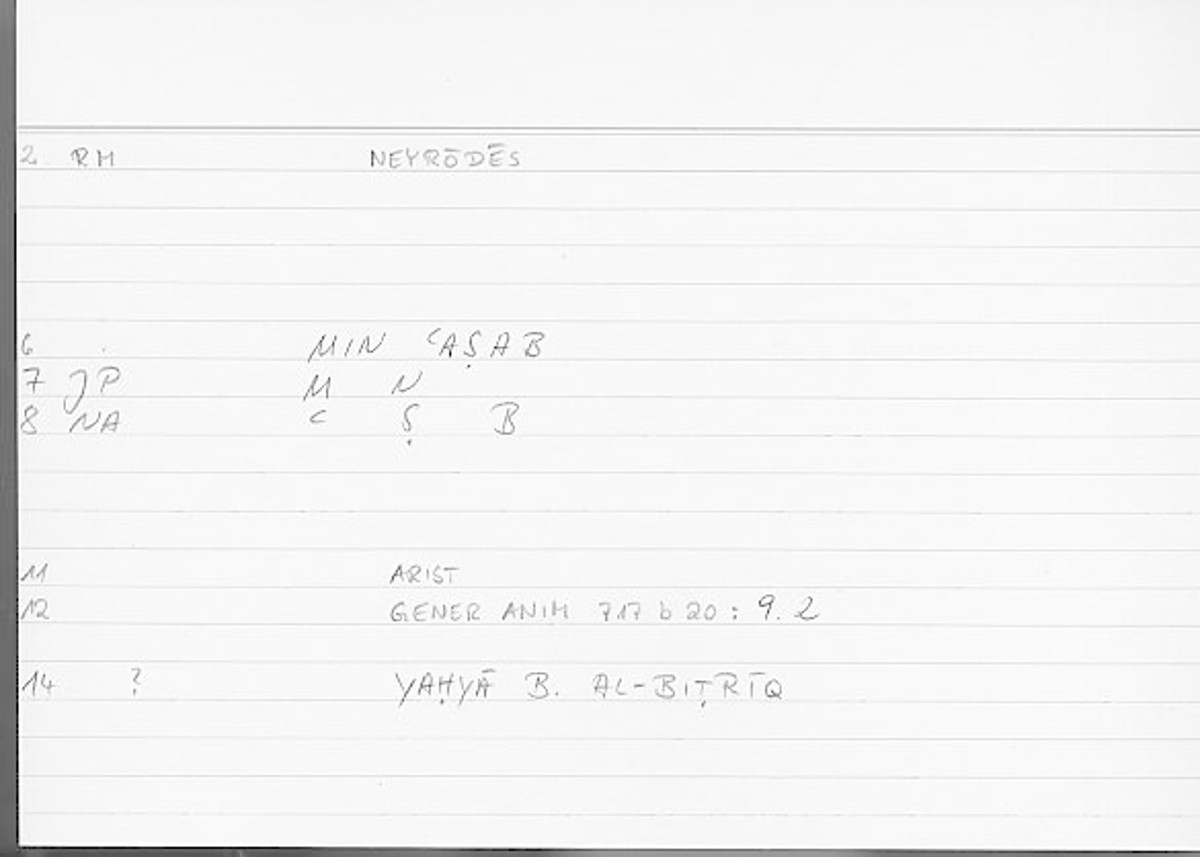 2 RM NEYRŌDĒS
6 MIN ʿAṢAB
7 JP M N
8 NA ʿ Ṣ B
11 ARIST
12 GENER ANIM 717 b 20 : 9. 2
14 ? YAḤYĀ B. AL-BIṬRĪQ